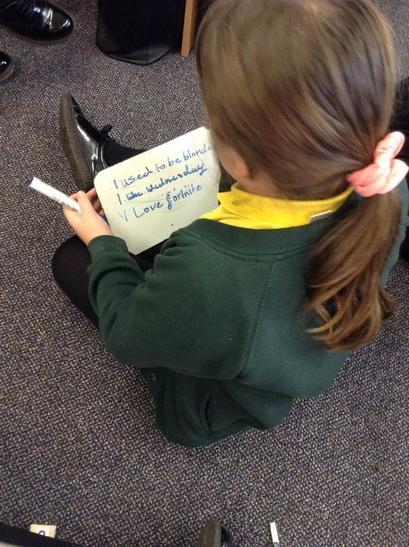 I used to be blonde
I like wednesday
I Love fortnite